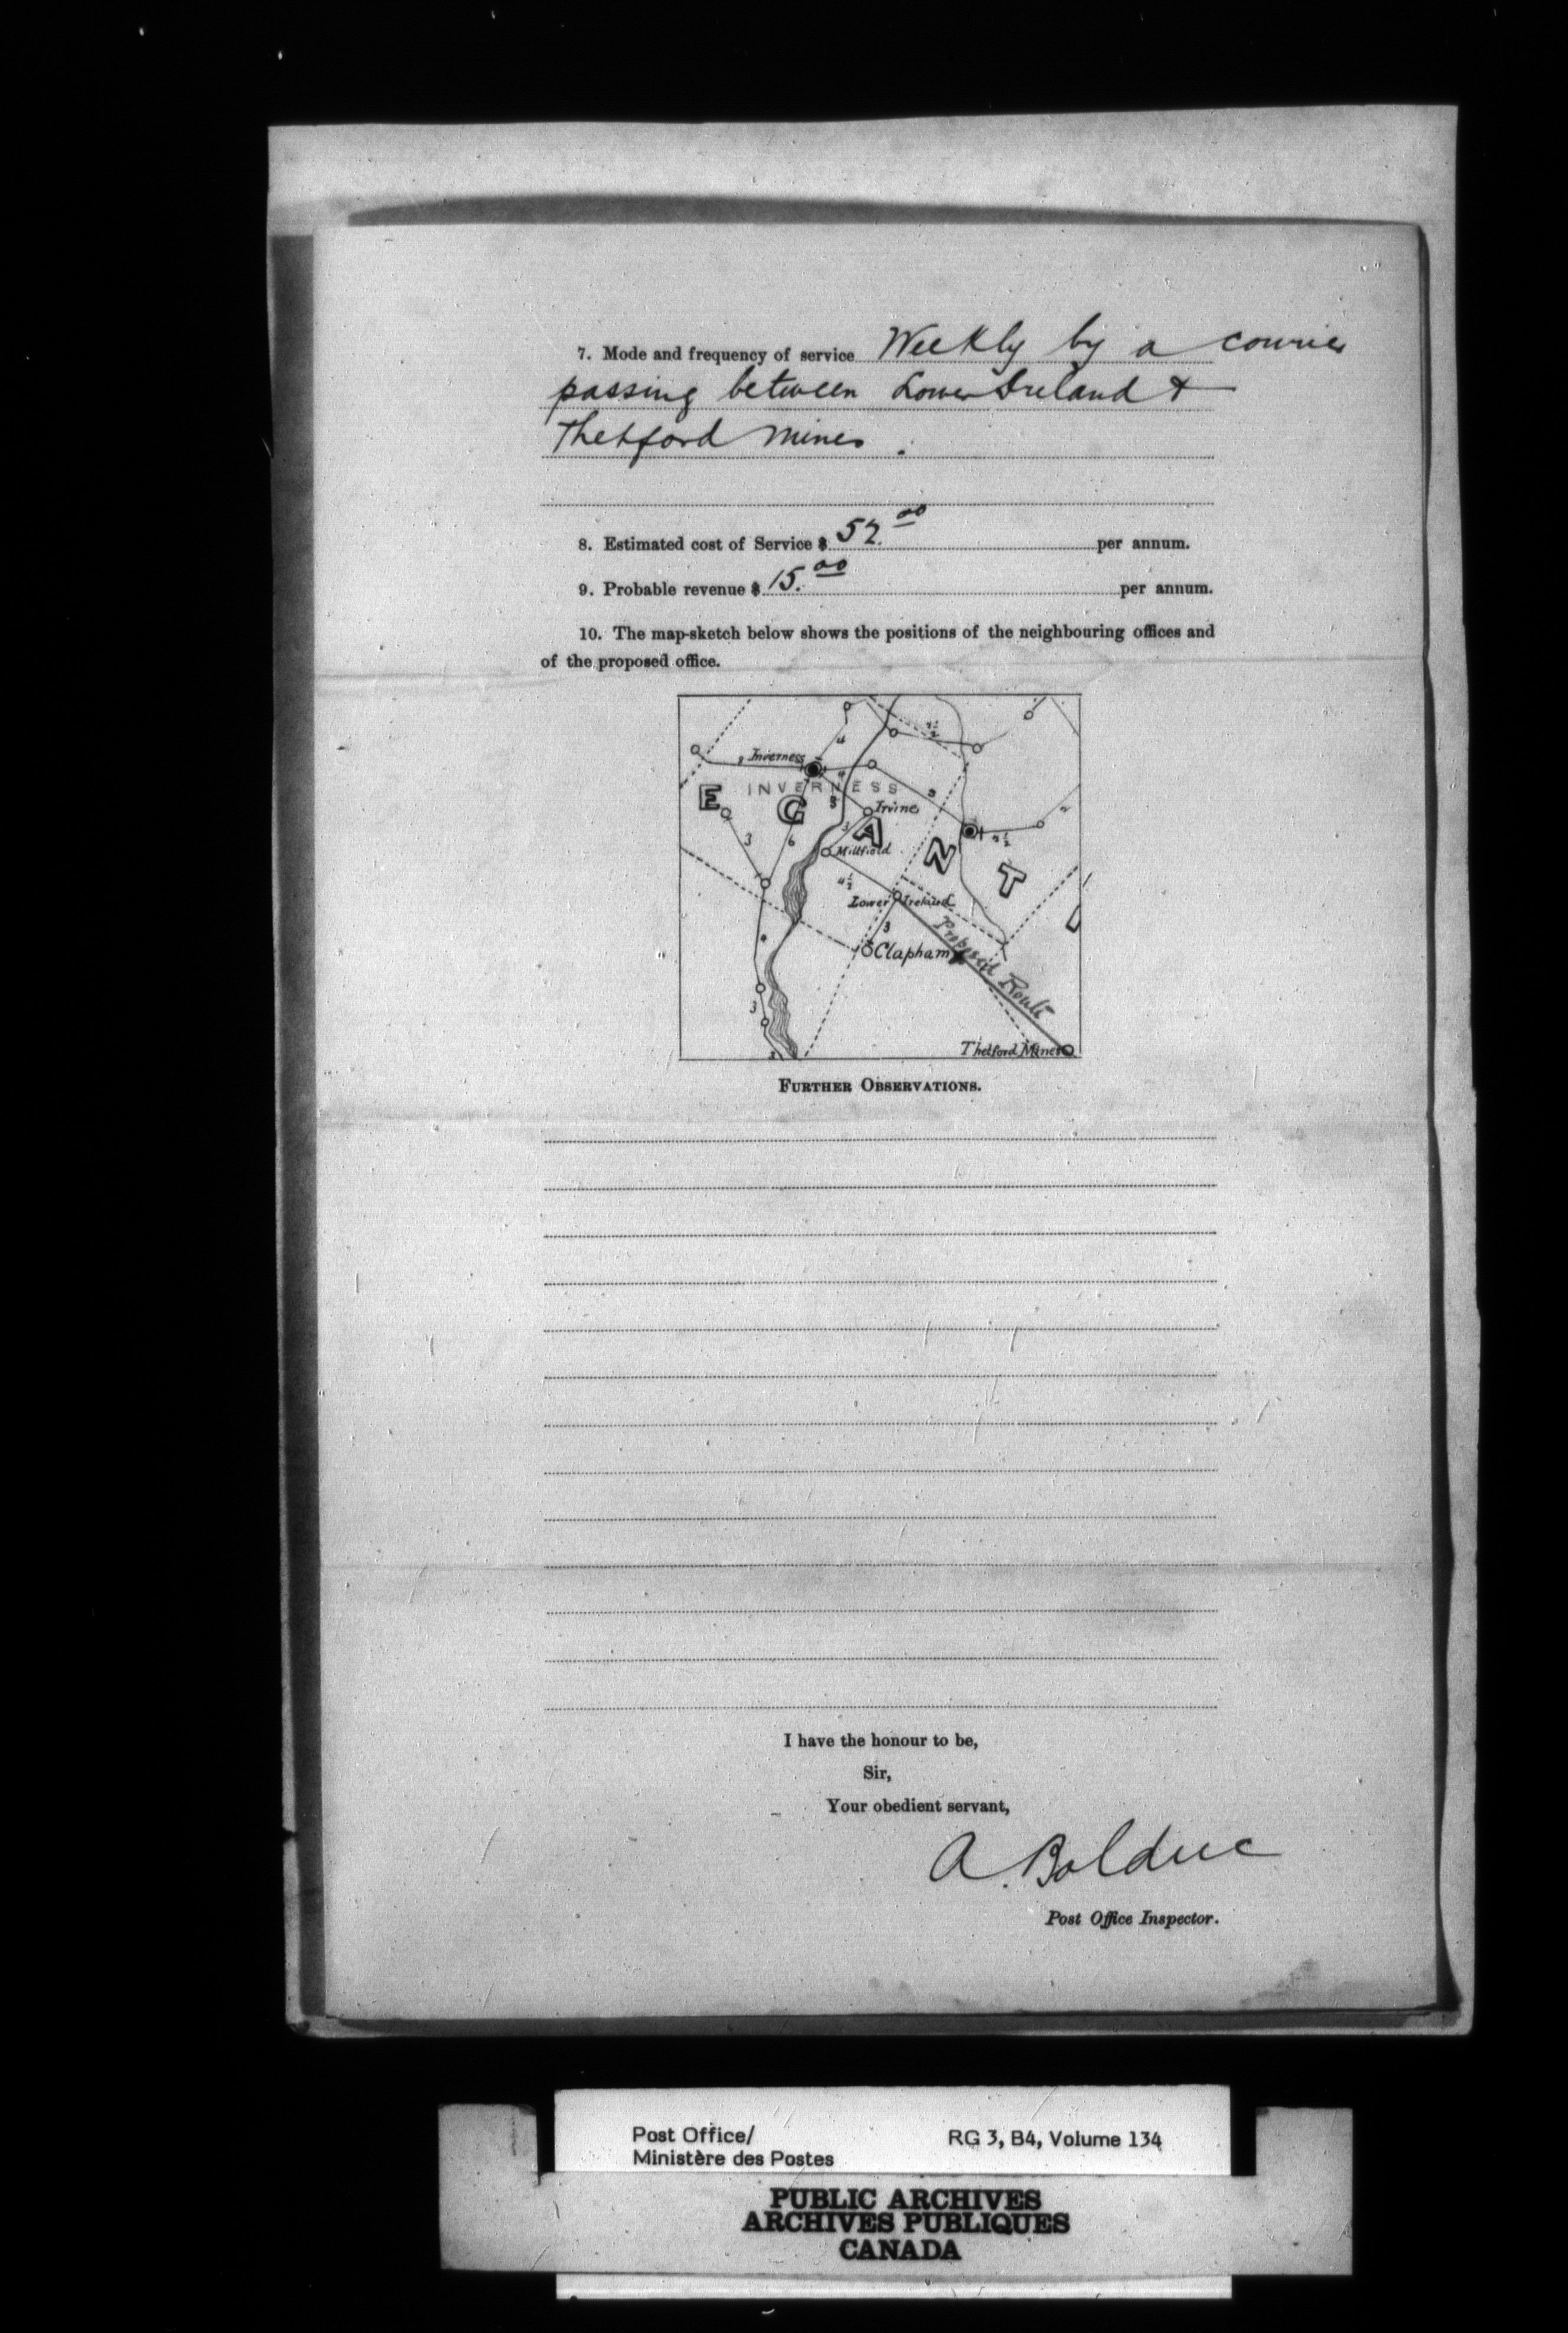 7. Mode and frequency of service Weekly by a courier
passing between Lower Ireland &
Thetford Mines.
8. Estimated cost of Service $ 52.00 per annum.
9. Probable revenue $ 15.00 per annum.
10. The map-sketch below shows the positions of the neighbouring offices and
of the proposed office.
Inverness
INVERNESS
E G A N T I
Irvine
3
6
Millfield
Lower Ireland
3
Clapham
Proposed Route
3
Thetford Mines
FURTHER OBSERVATIONS.
I have the honour to be,
Sir,
Your obedient servant,
A. Bolduc
Post Office Inspector.
Post Office/
Ministère des Postes
RG 3, B4, Volume 134
PUBLIC ARCHIVES
ARCHIVES PUBLIQUES
CANADA